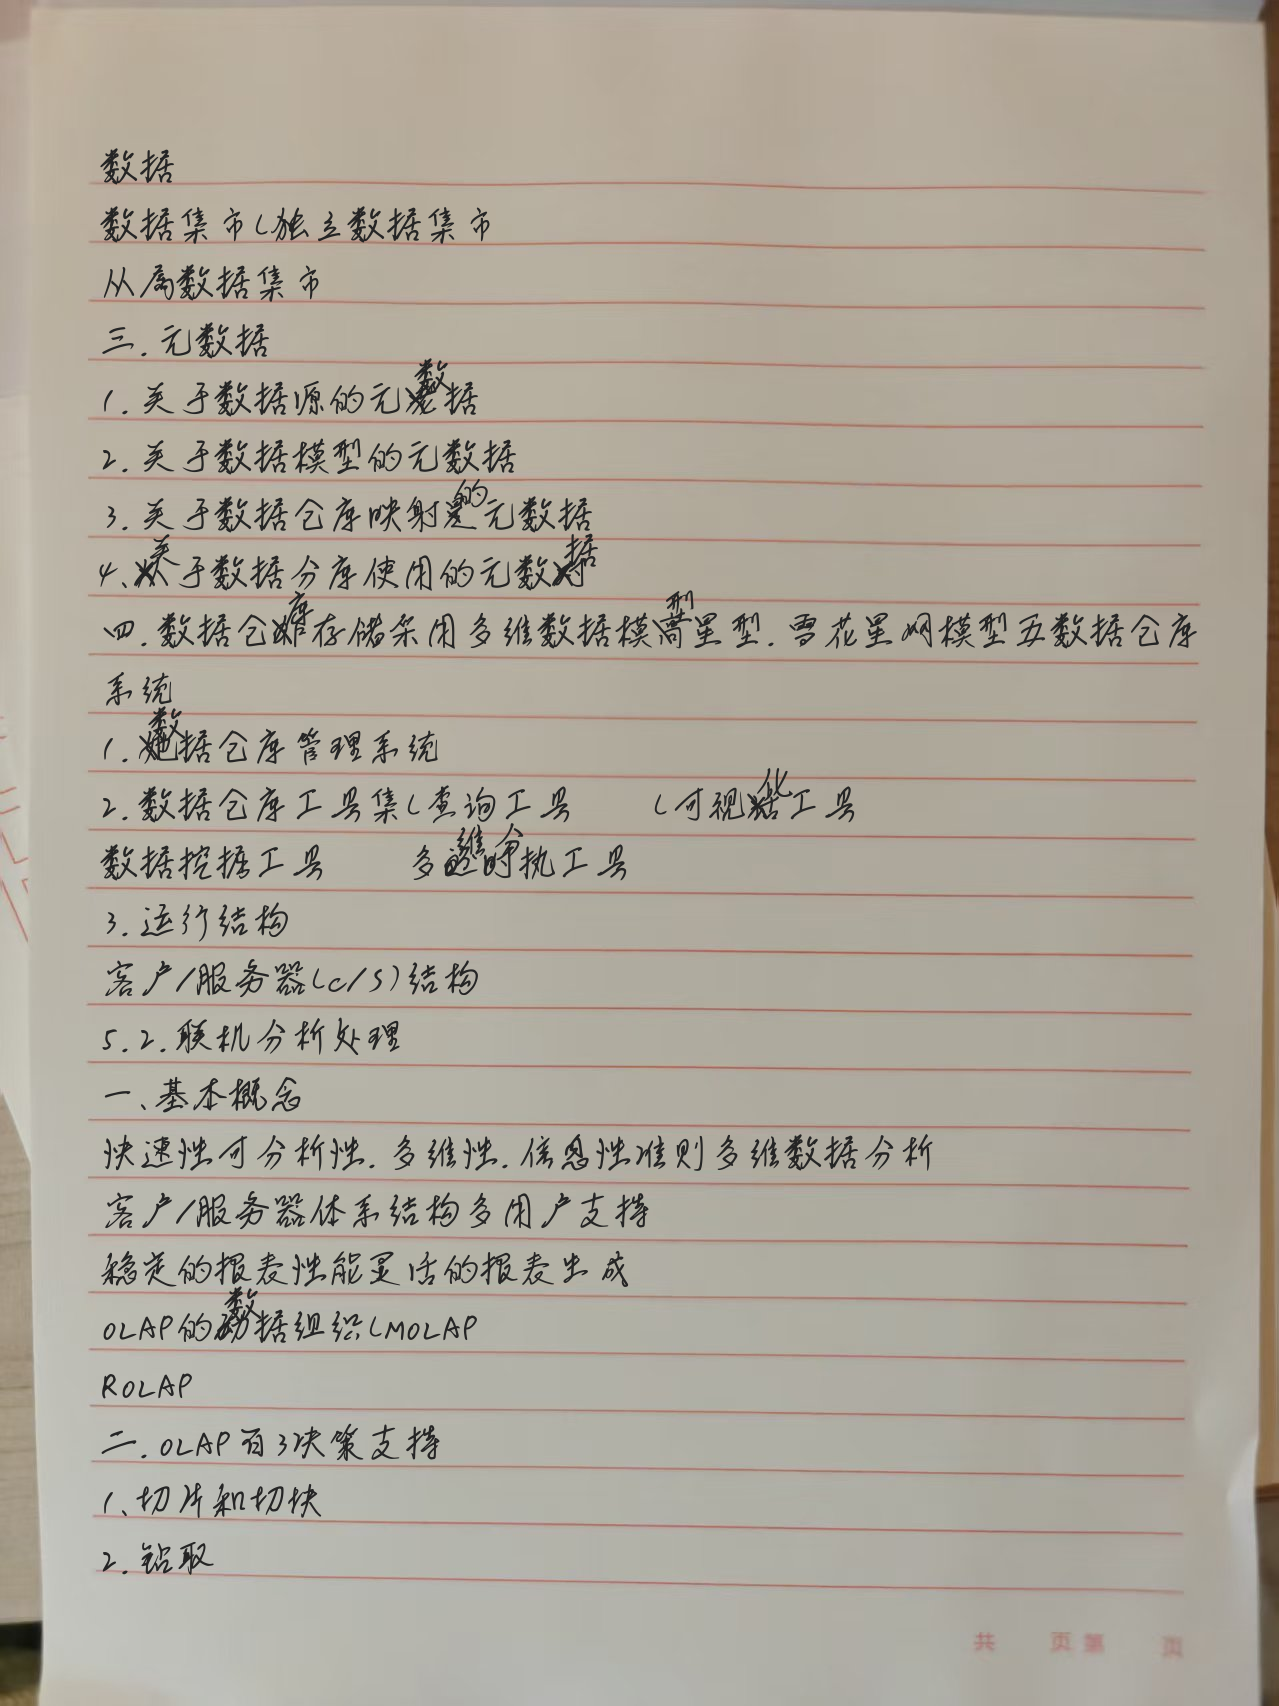 数据
数据集市(独立数据集市
从属数据集市
三.元数据
1.关于数据源的元数据
2.关于数据模型的元数据
3.关于数据仓库映射的元数据
4、关于数据分库使用的元数据
四.数据仓库存储采用多维数据模型星型.雪花星网模型五数据仓库
系统
1.数据仓库管理系统
2.数据仓库工具集(查询工具 (可视化工具
数据挖掘工具 多维分执工具
3.运行结构
客户/服务器(C/S)结构
5.2.联机分析处理
一、基本概念
快速性可分析性.多维性.信息性准则多维数据分析
客户/服务器体系结构多用户支持
稳定的报表性能灵活的报表生成
OLAP的数据组织(MOLAP
ROLAP
二.OLAP百了决策支持
1、切片和切块
2.钻取
共 页 第 页